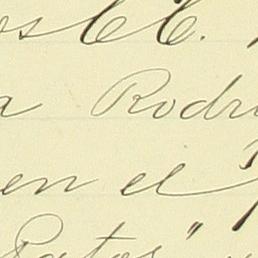 os CC.
a Rodri
en el
Patos"